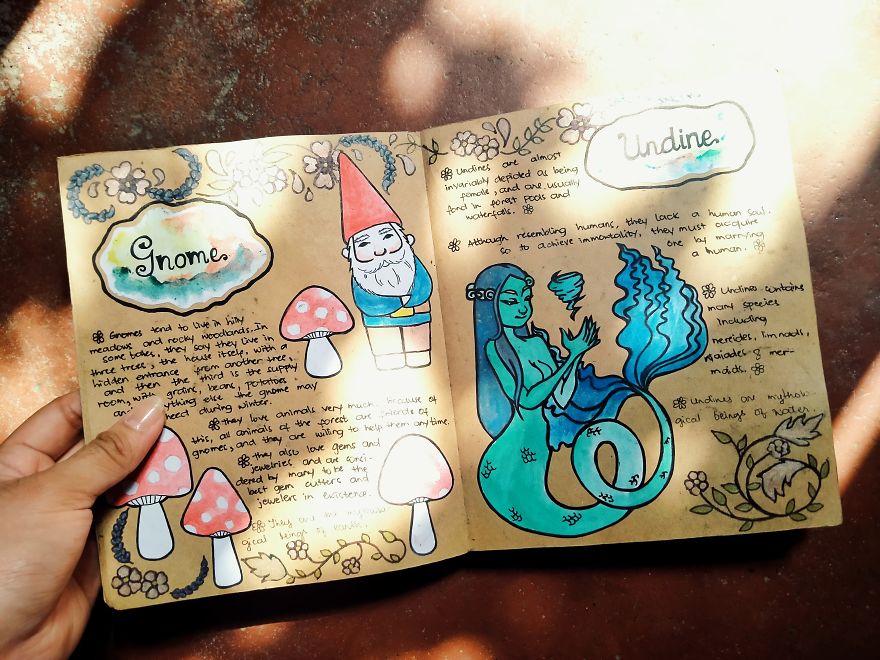 Gnome.
Gnomes tend to live in hilly
meadows and rocky woodlands. In
some bokes, they say they live in
three trees, the house itself, with a
hidden entrance from another tree,
and then the third is the supply
room, with grains, beans, potatoes
an ything else the gnome may
need during winter.
they love animals very much because of
this, all animals of the forest are friends of
gnomes, and they are willing to help them anytime.
they also love gems and
jewelries and are consi-
dered by many to be the
best gem cutters and
jewelers in existence.
They are the mytholo
gical beings of earth.
Undine.
Undines are almost
invariably depicted as being
female, and are usually
fond in forest pools and
waterfalls.
Although resembling humans, they lack a human soul,
so to achieve immortality, they must acquire
one by marrying
a human.
Undines contains
many species
including
nereides, limnads,
naiades & mer-
maids.
Undines are mytholo-
gical beings of water.